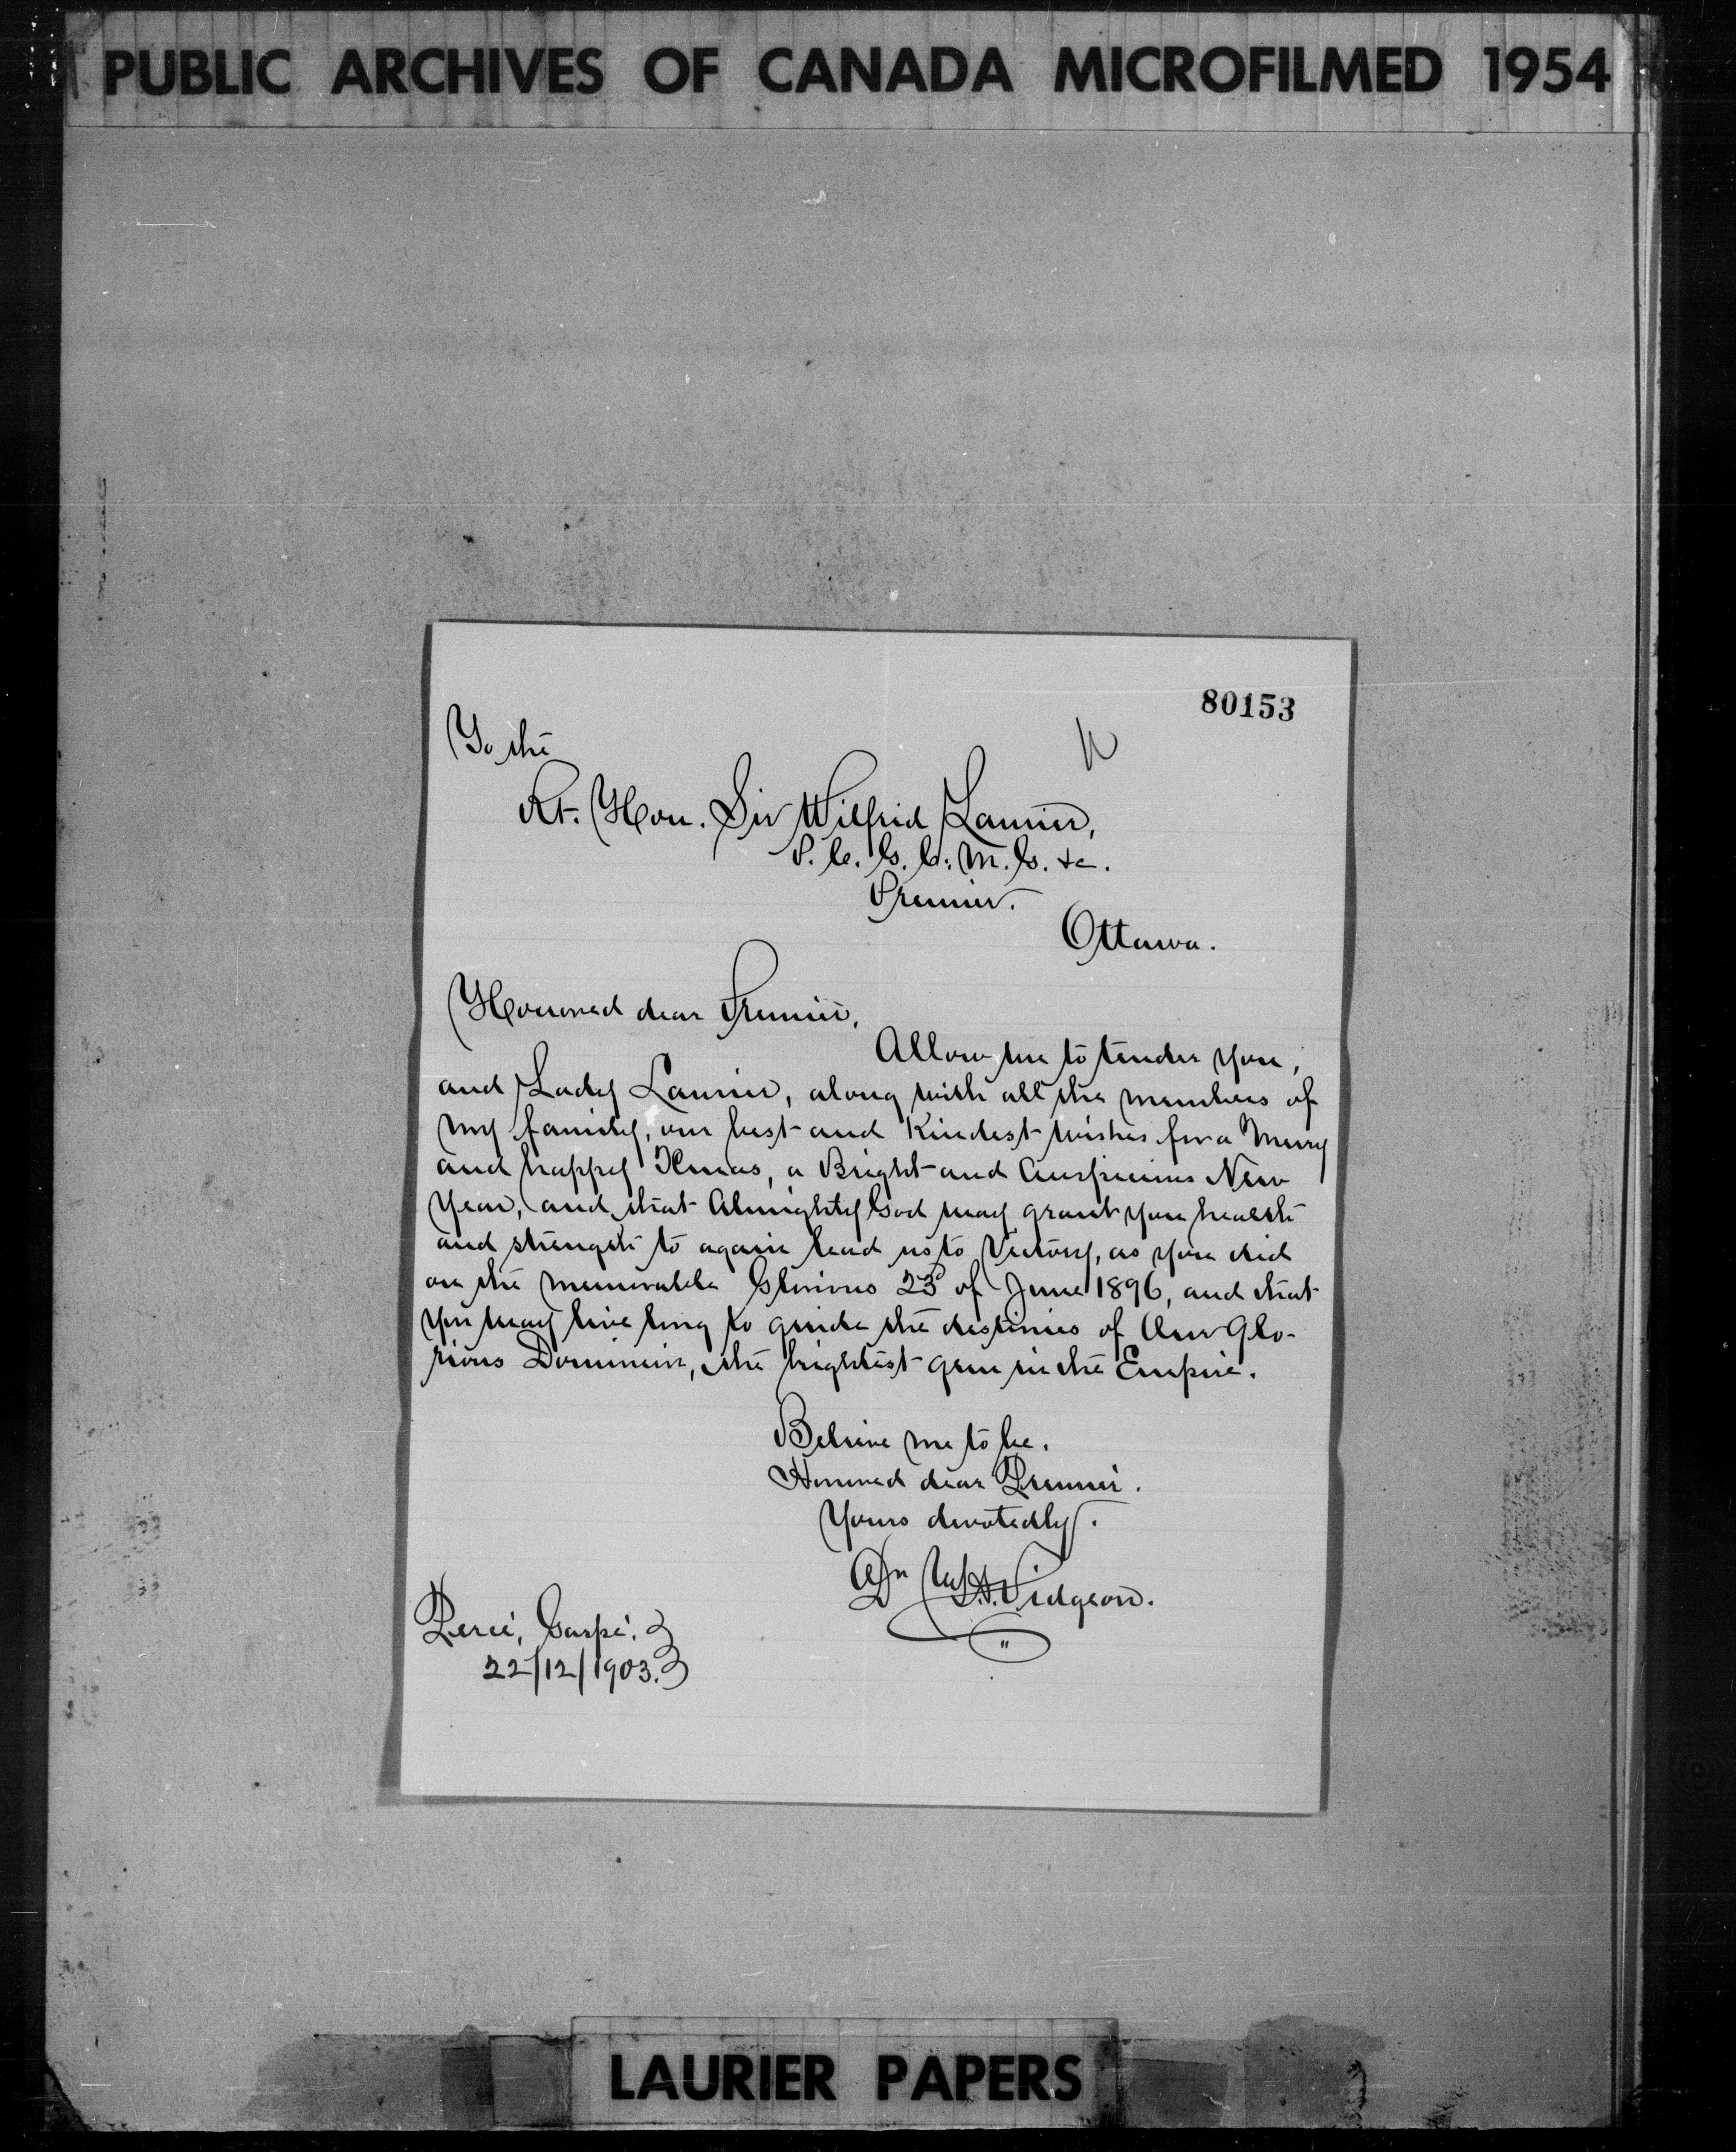 PUBLIC ARCHIVES OF CANADA MICROFILMED 1954
80153
To the
Rt. Hon. Sir Wilfrid Laurier,
P.C. G.C.M.G. &c.
Premier.
Ottawa.
Honored dear Premier,
Allow me to tender you,
and Lady Laurier, along with all the members of
my family, our best and Kindest wishes for a Merry
and happy Xmas, a Bright and Auspicious New
Year, and that Almighty God may grant you health
and strength to again lead us to Victory, as you did
on the memorable Glorious 23d of June 1896, and that
you may live long to guide the destinies of Our Glo-
rious Dominion, the brightest gem in the Empire.
Believe me to be.
Honored dear Premier.
Yours devotedly.
Dr Pidgeon.
Percé, Gaspé.
22/12/1903.
LAURIER PAPERS